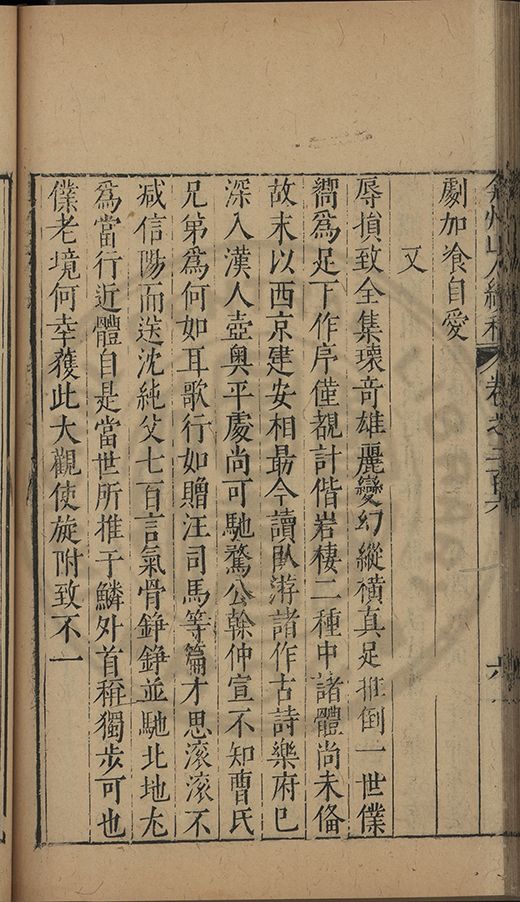 弇州山人續稿 卷之二百六 六
劇加飡自愛
又
辱損致全集瓌竒雄麗變幻縱橫真足推倒一世僕
嚮爲足下作序僅覩計偕岩棲二種中諸體尚未備
故末以西京建安相最今讀臥游諸作古詩樂府已
深入漢人壺奥平處尚可馳騖公榦仲宣不知曹氏
兄第爲何如耳歌行如贈汪司馬等篇才思滚滚不
减信陽而送沈純父七百言氣骨錚錚並馳北地尤
爲當行近體自是當世所推于鱗外首稱獨步可也
僕老境何幸獲此大觀使旋附致不一